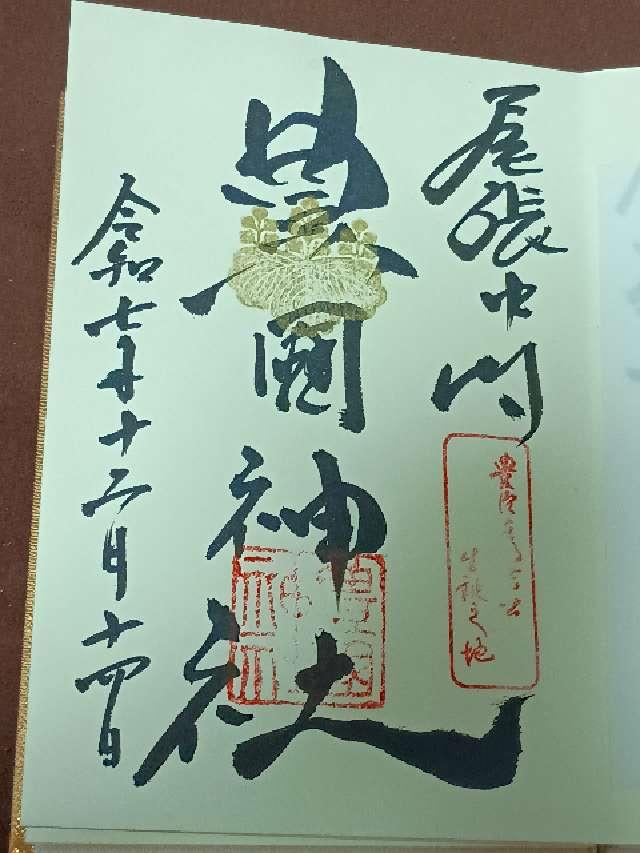 尾張中村
豊臣秀吉公
生誕之地
豊國神社
令和七年十二月十四日